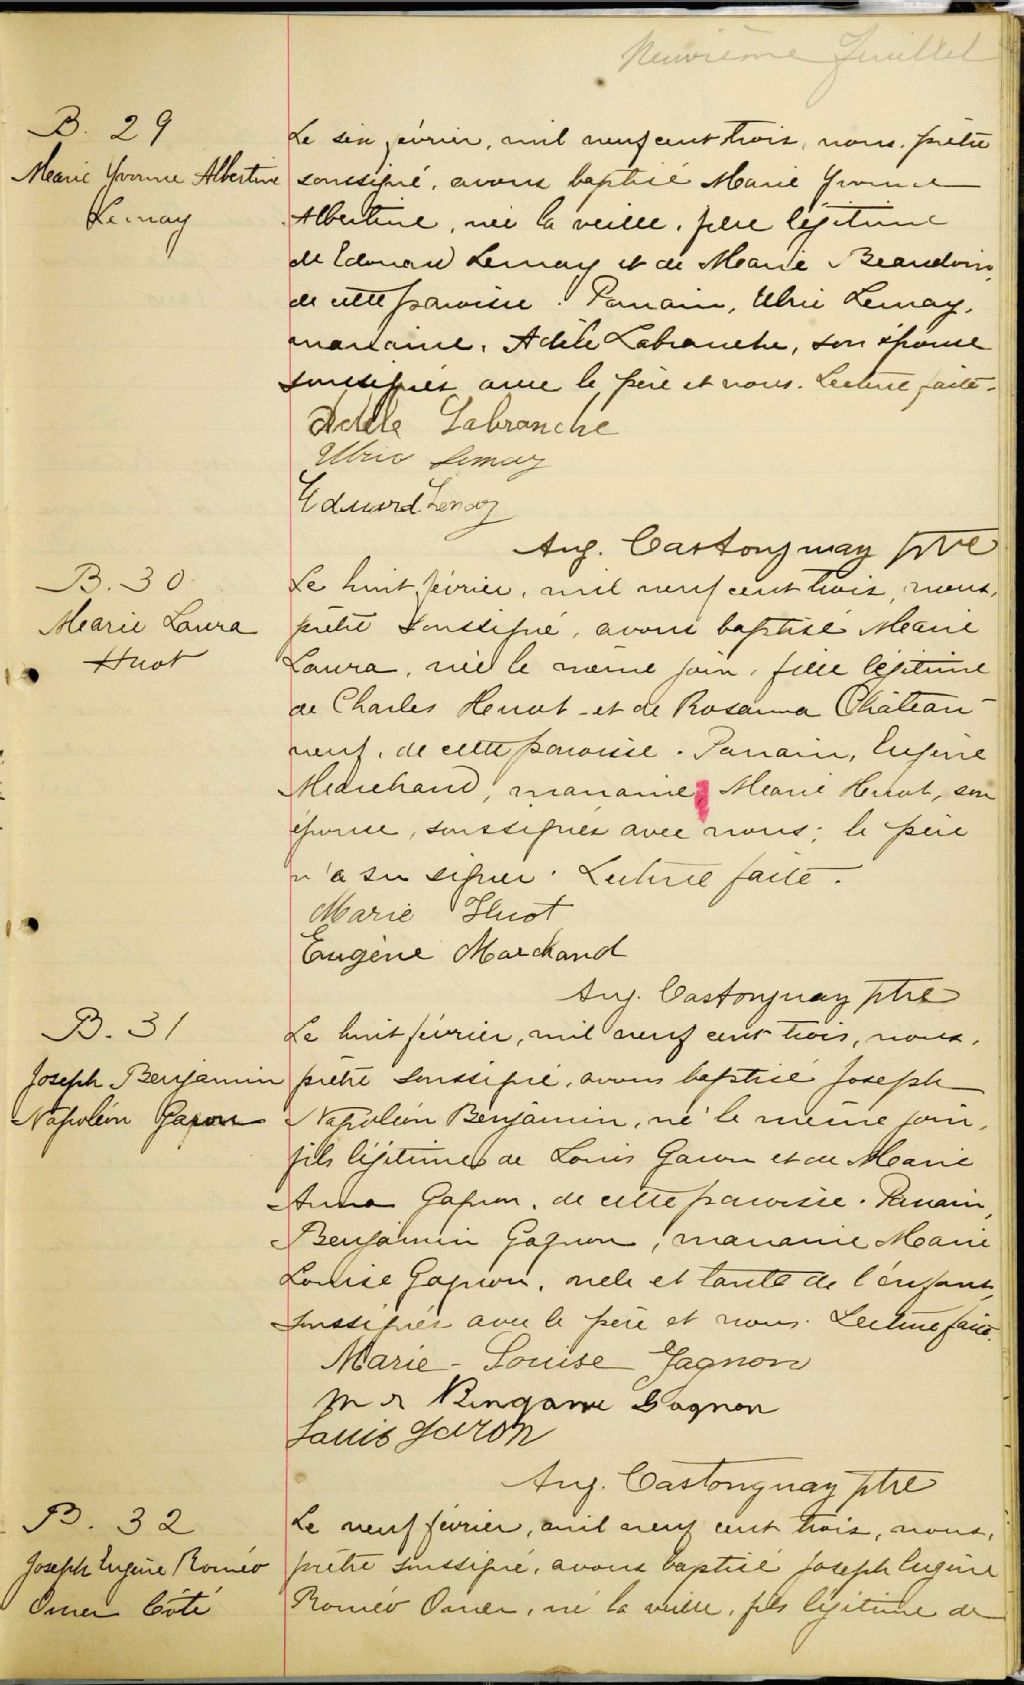 Neuvième feuillet
B. 29
Marie Yvonne Albertine
Lemay
Le six février, mil neuf cent trois, nous, prêtre
soussigné, avons baptisé Marie Yvonne
Albertine, née la veille, fille légitime
de Edouard Lemay et de Marie Beaudoin,
de cette paroisse. Parrain, Ulric Lemay,
marraine, Adèle Labranche, son épouse
soussignés avec le père et nous. Lecture faite.
Adèle Labranche
Ulric Lemay
Eduard Lemay
Aug. Castonguay ptre
B. 30
Marie Laura
Huot
Le huit février, mil neuf cent trois, nous,
prêtre soussigné, avons baptisé Marie
Laura, née le même jour, fille légitime
de Charles Huot et de Rosanna Château-
neuf, de cette paroisse. Parrain, Eugène
Marchand, marraine, Marie Huot, son
épouse, soussignés avec nous; le père
n'a su signer. Lecture faite.
Marie Huot
Eugène Marchand
Aug. Castonguay ptre
B. 31
Joseph Benjamin
Napoléon Garon
Le huit février, mil neuf cent trois, nous,
prêtre soussigné, avons baptisé Joseph
Napoléon Benjamin, né le même jour,
fils légitime de Louis Garon et de Marie
Anna Gagnon, de cette paroisse. Parrain,
Benjamin Gagnon, marraine Marie
Louise Gagnon, oncle et tante de l'enfant,
soussignés avec le père et nous. Lecture faite.
Marie-Louise Gagnon
Gagnon
Louis Garon
Aug. Castonguay ptre
B. 32
Joseph Eugène Roméo
Omer Côté
Le neuf février, mil neuf cent trois, nous,
prêtre soussigné, avons baptisé Joseph Eugène
Roméo Omer, né la veille, fils légitime de